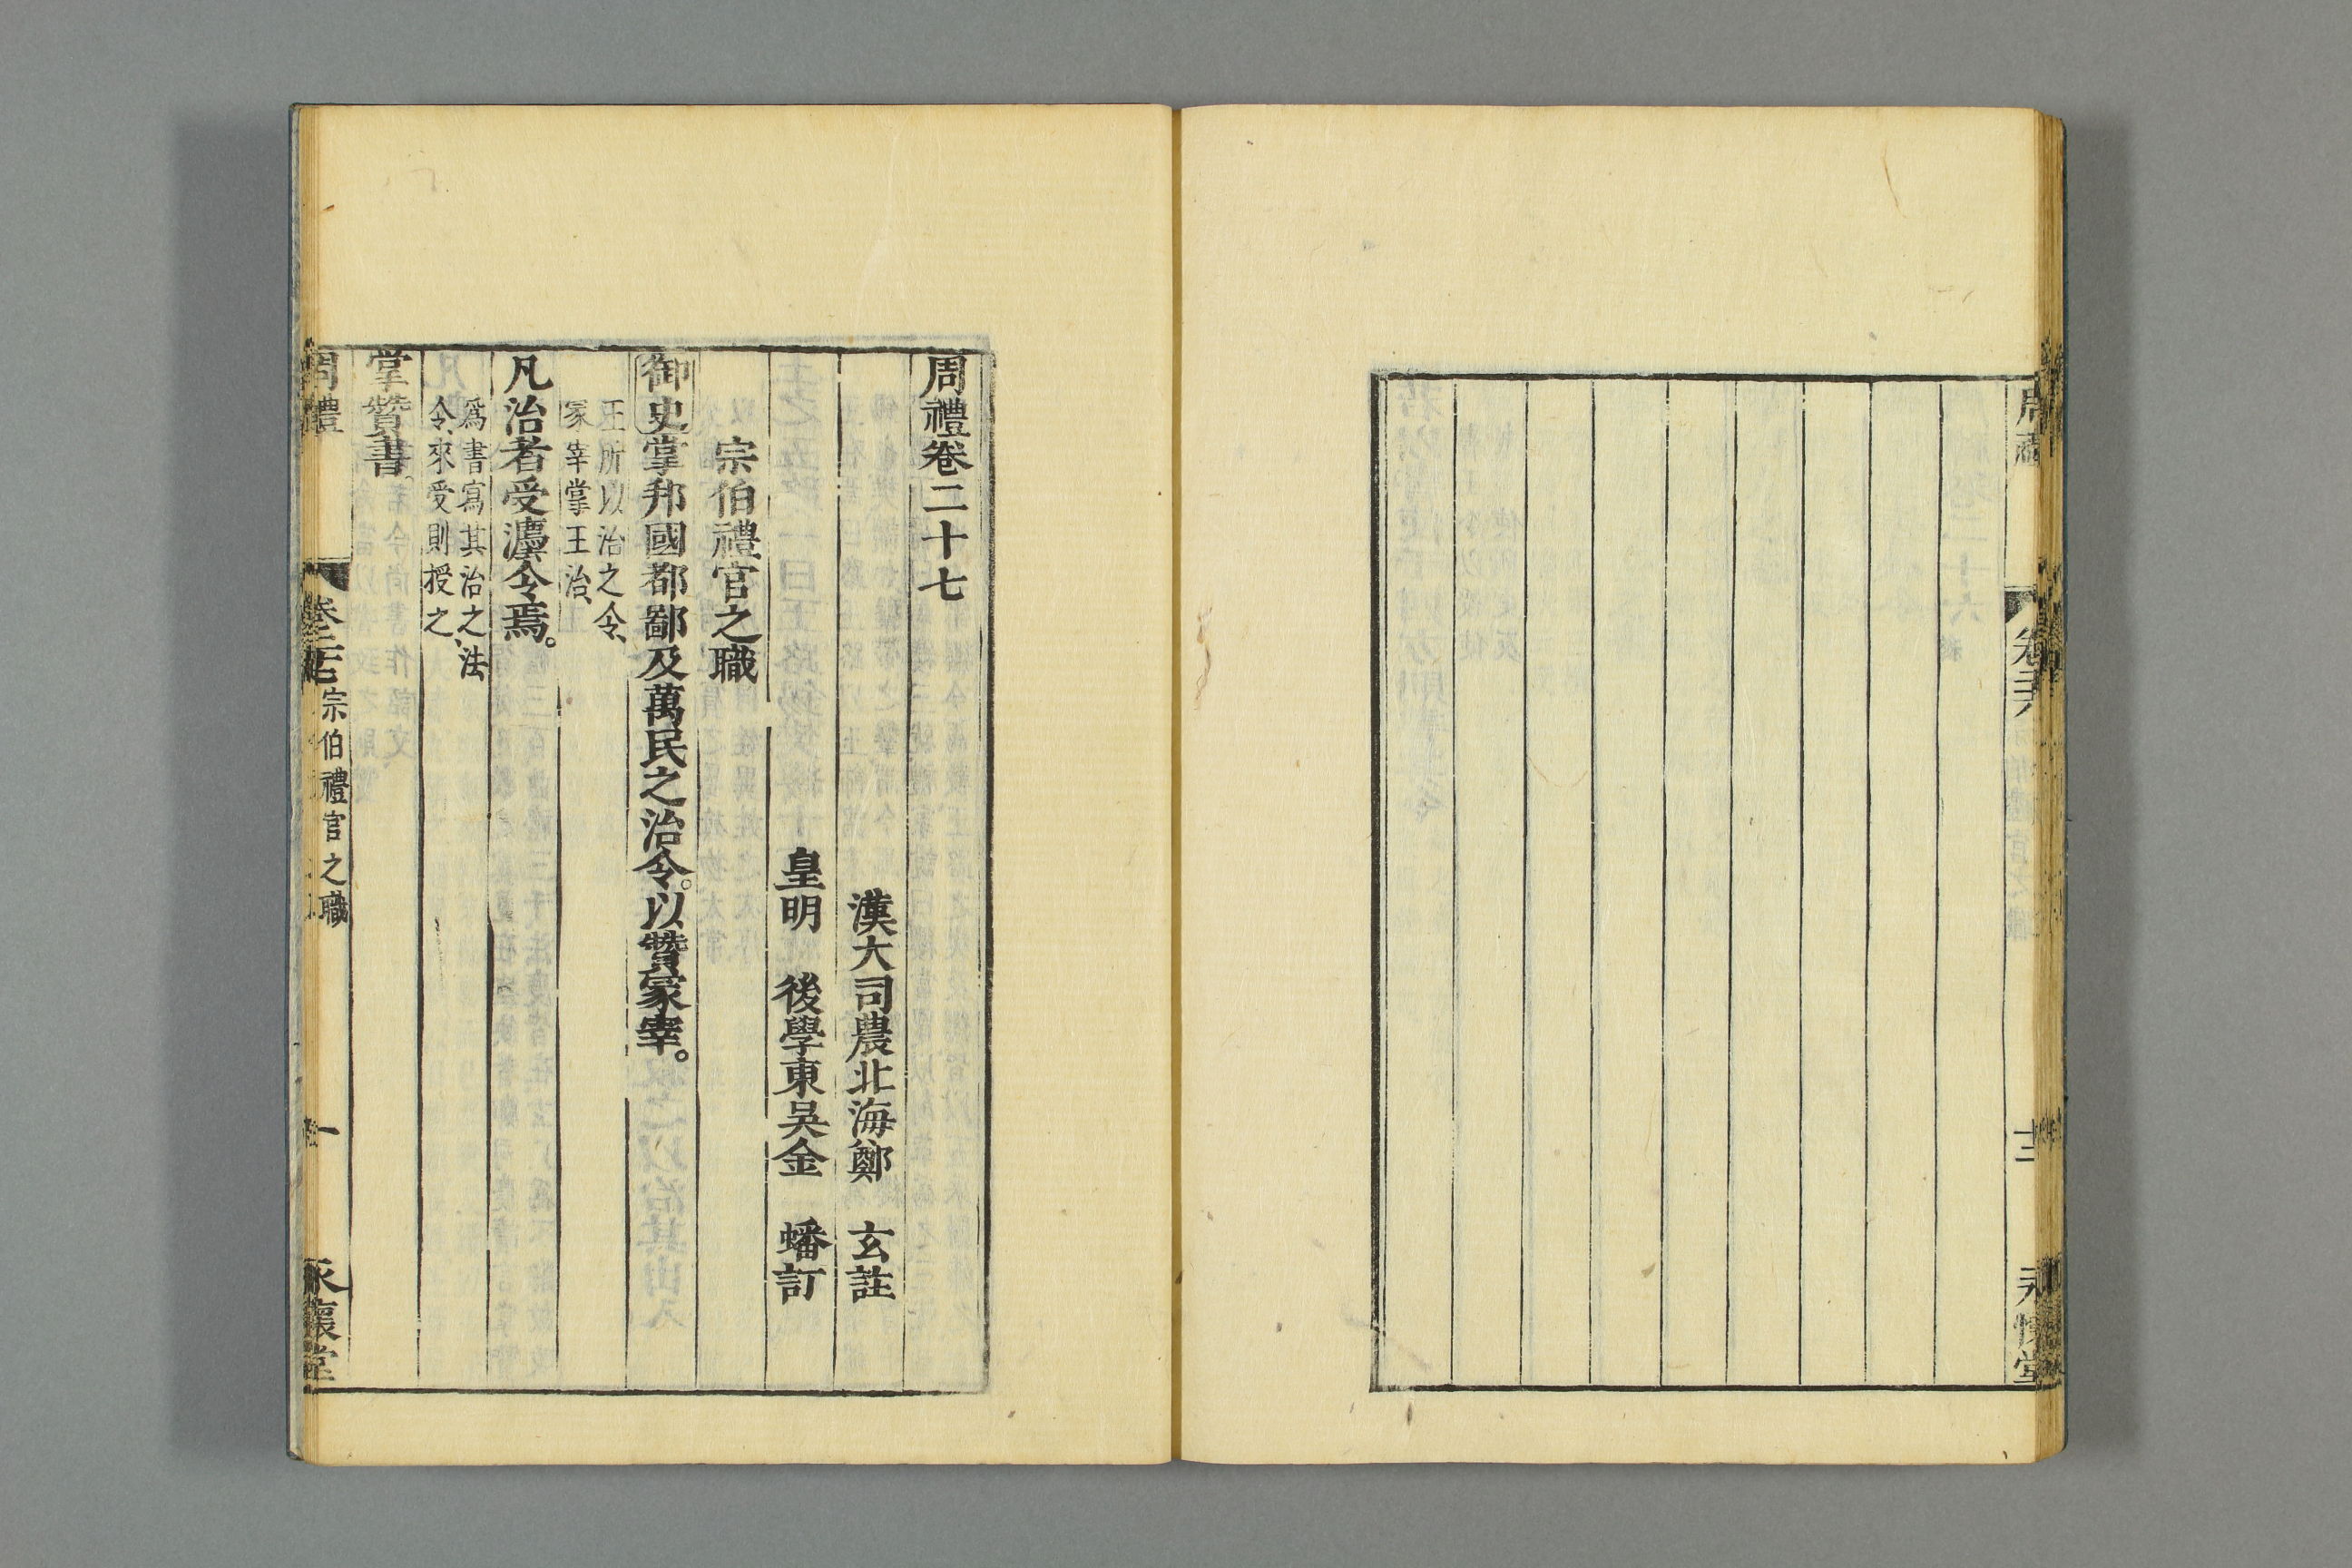 周禮卷二十七
漢大司農北海鄭　玄註
皇明　後學東吳金　蟠訂
宗伯禮官之職
御史掌邦國都鄙及萬民之治令。以贊冢宰。
王所以治之令、
冢宰掌王治、
凡治者受灋令焉。
爲書寫其治之、法
令、來受則授之、
掌贊書、
周禮
卷二十七
宗伯禮官之職
一
永懷堂